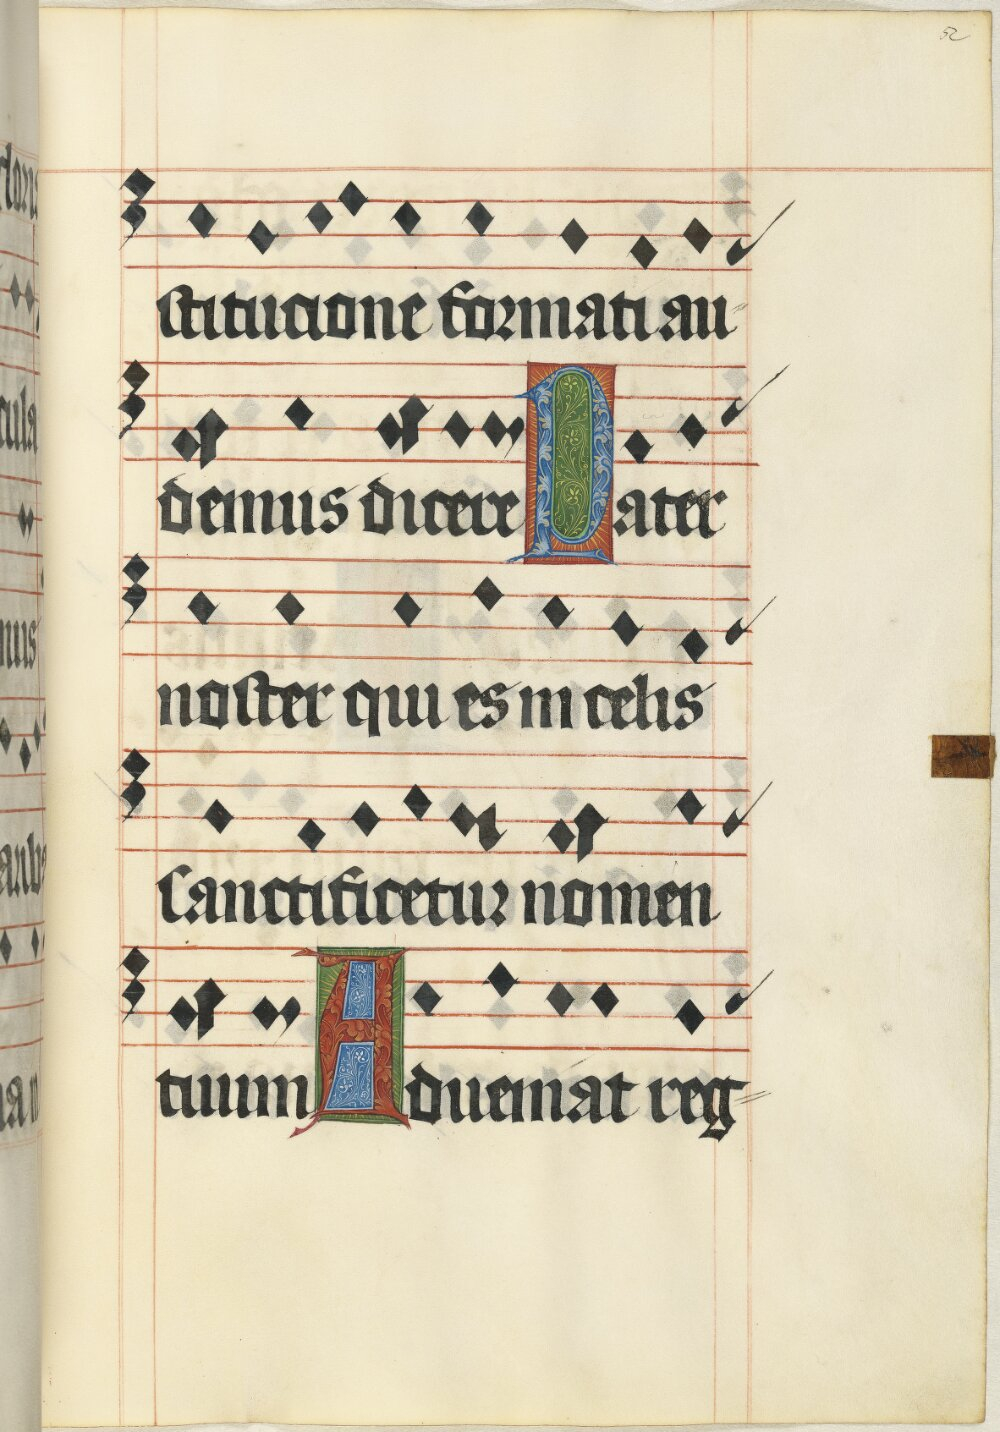 52
stitucione formati au-
demus dicere Pater
noster qui es in celis
Sanctificetur nomen
tuum Adueniat reg=